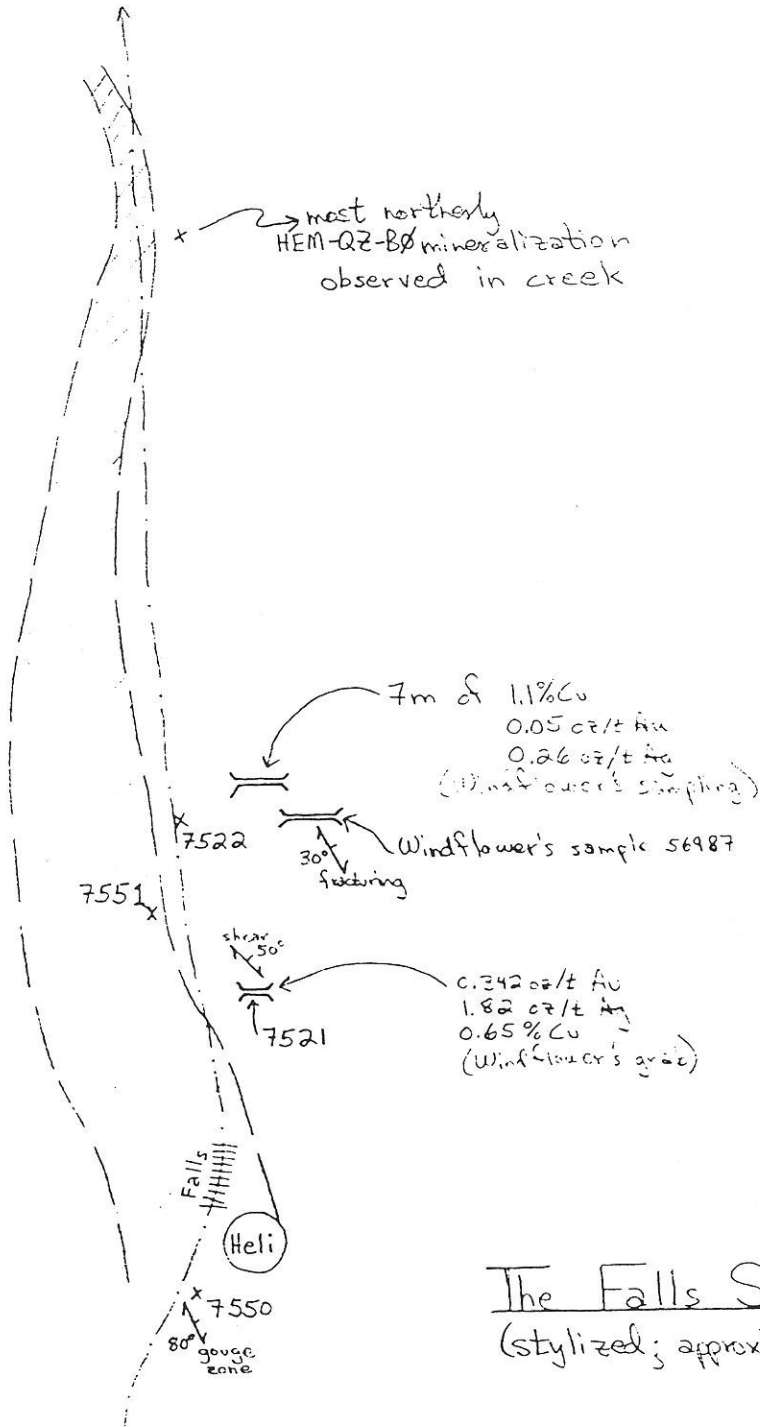 most northerly
HEM-QZ-BØ mineralization
observed in creek
7m of 1.1% Cu
0.05 oz/t Au
0.26 oz/t
(Windflower's sampling)
7522
Windflower's sample 56987
30°
fracturing
7551
shear
50°
7521
0.342 oz/t Au
1.82 oz/t Ag
0.65% Cu
(Windflower's grab)
Falls
Heli
7550
80°
gouge
zone
The Falls S
(stylized; approxi